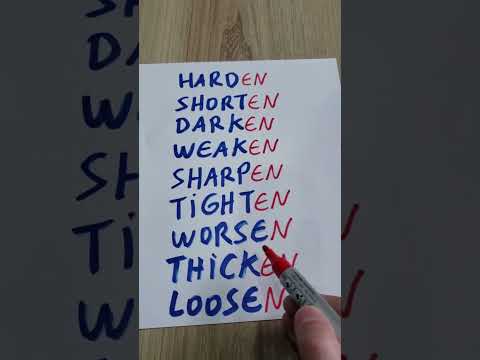 HARDEN
SHORTEN
DARKEN
WEAKEN
SHARPEN
TiGHTEN
WORSEN
THICKEN
LOOSEN